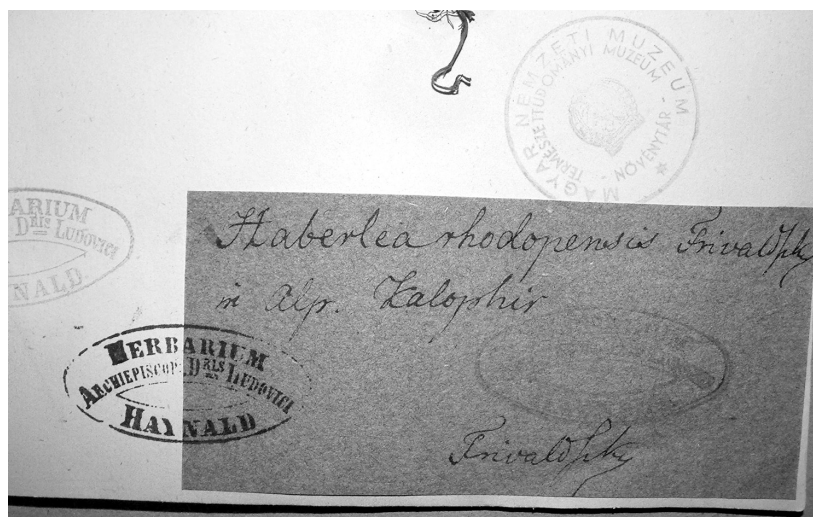 MAGYAR NEMZETI MUZEUM
TERMÉSZETTUDOMÁNYI MUZEUM - NÖVÉNYTÁR -
ARIUM
DRIS LUDOVICI
NALD
Haberlea rhodopensis Frivaldſzky
in Alp. Kalophir
HERBARIUM
ARCHIEPISCOP. DRIS LUDOVICI
HAYNALD
Frivaldſzky